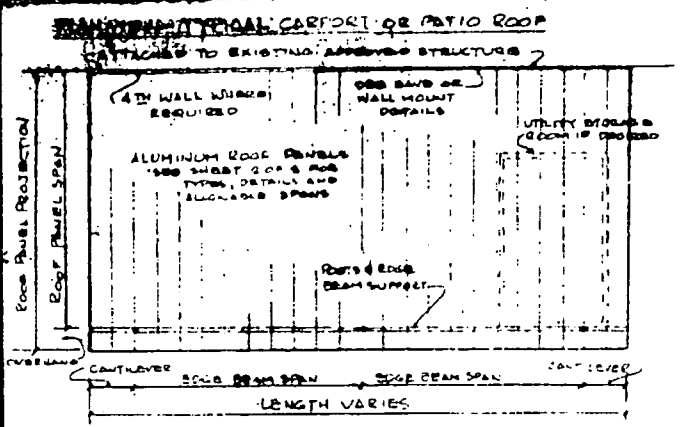 TYPICAL CARPORT OR PATIO ROOF
ATTACHED TO EXISTING APPROVED STRUCTURE
4TH WALL WHERE
REQUIRED
SEE EAVE OR
WALL MOUNT
DETAILS
UTILITY STORAGE
ROOM IF DESIRED
ALUMINUM ROOF PANELS
SEE SHEET 2 OF 5 FOR
TYPES, DETAILS AND
ALLOWABLE SPANS
ROOF PANEL PROJECTION
ROOF PANEL SPAN
POSTS & EDGE
BEAM SUPPORT
OVERHANG
CANTILEVER
EDGE BEAM SPAN
EDGE BEAM SPAN
CANTILEVER
LENGTH VARIES